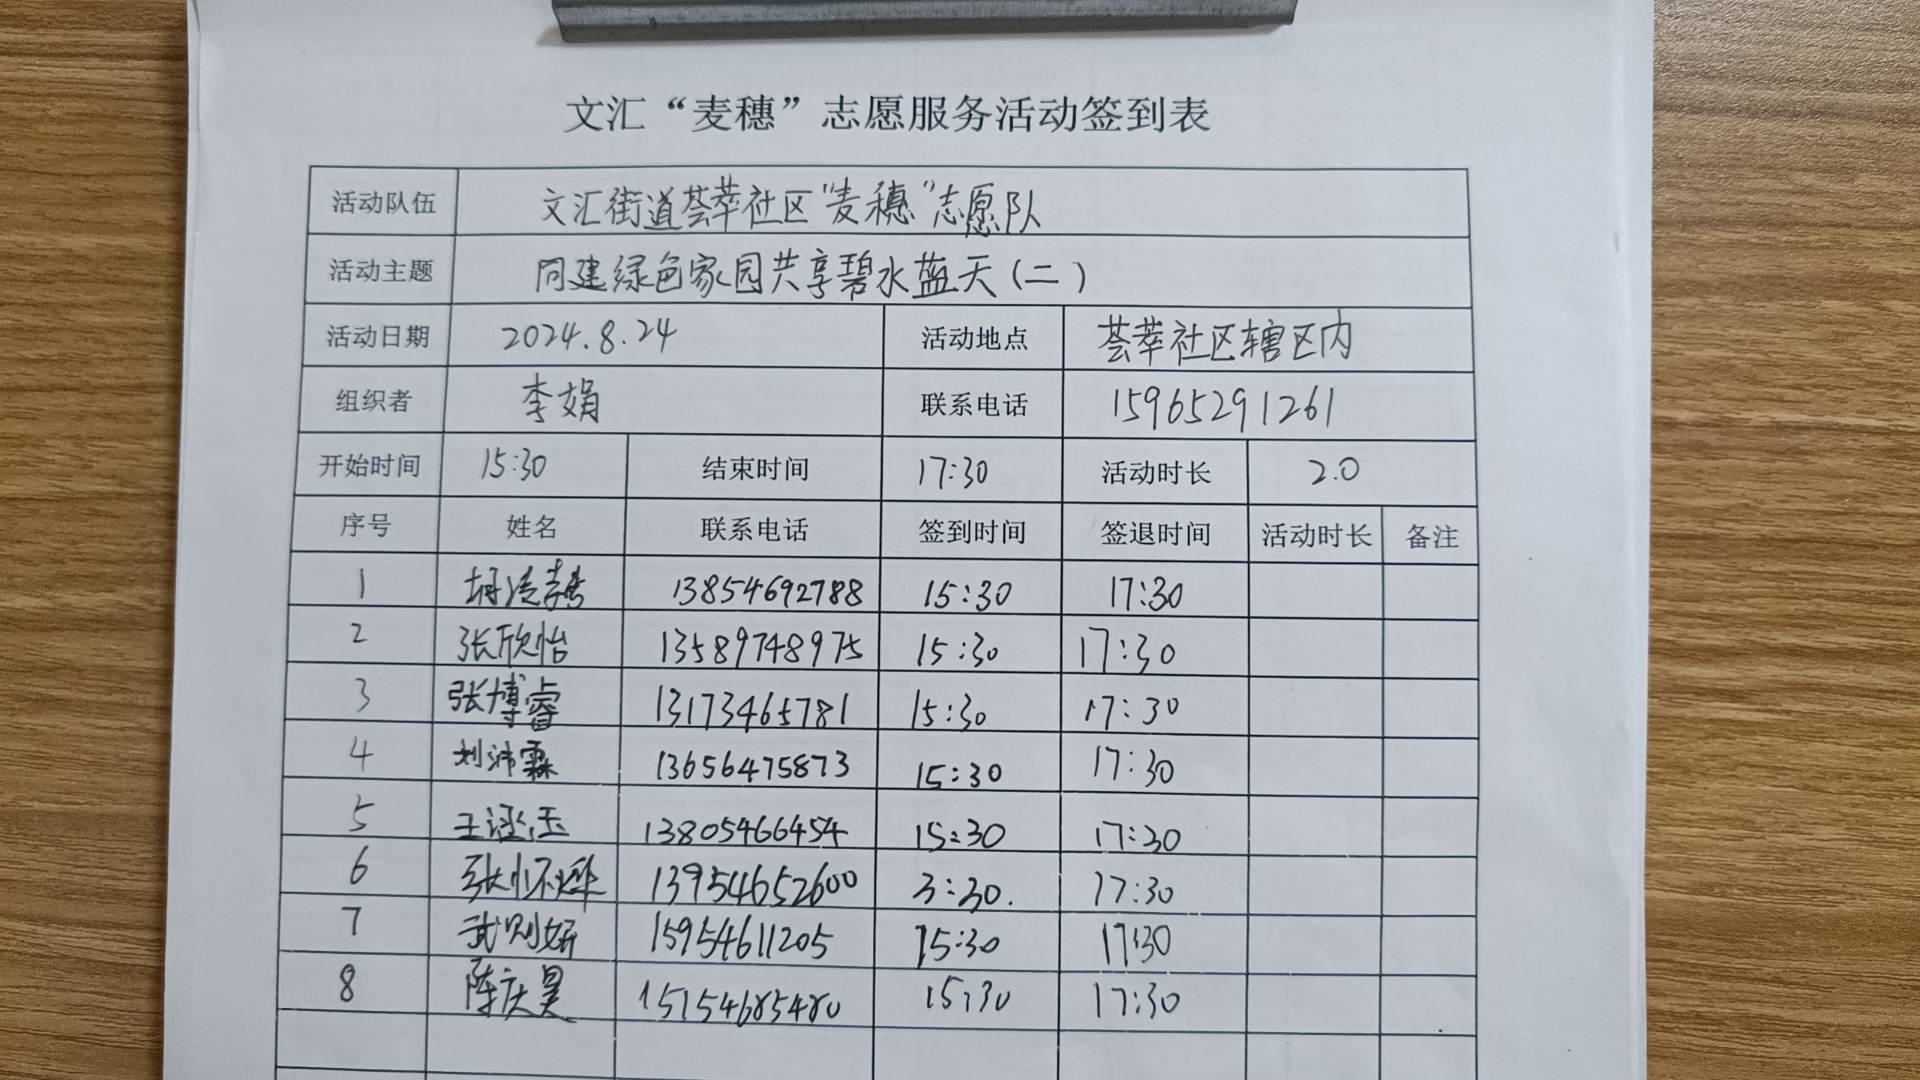 文汇“麦穗”志愿服务活动签到表
活动队伍 文汇街道荟萃社区“麦穗”志愿队
活动主题 同建绿色家园共享碧水蓝天(二)
活动日期 2024.8.24 活动地点 荟萃社区辖区内
组织者 李娟 联系电话 15965291261
开始时间 15:30 结束时间 17:30 活动时长 2.0
序号 姓名 联系电话 签到时间 签退时间 活动时长 备注
1 13854692788 15:30 17:30
2 张欣怡 13589748975 15:30 17:30
3 张博睿 13173465781 15:30 17:30
4 刘沛霖 13656475873 15:30 17:30
5 王 玉 13805466454 15:30 17:30
6 张怀烨 13954652600 3:30. 17:30
7 武则妍 15954611205 15:30 17:30
8 陈庆昊 15154685480 15:30 17:30